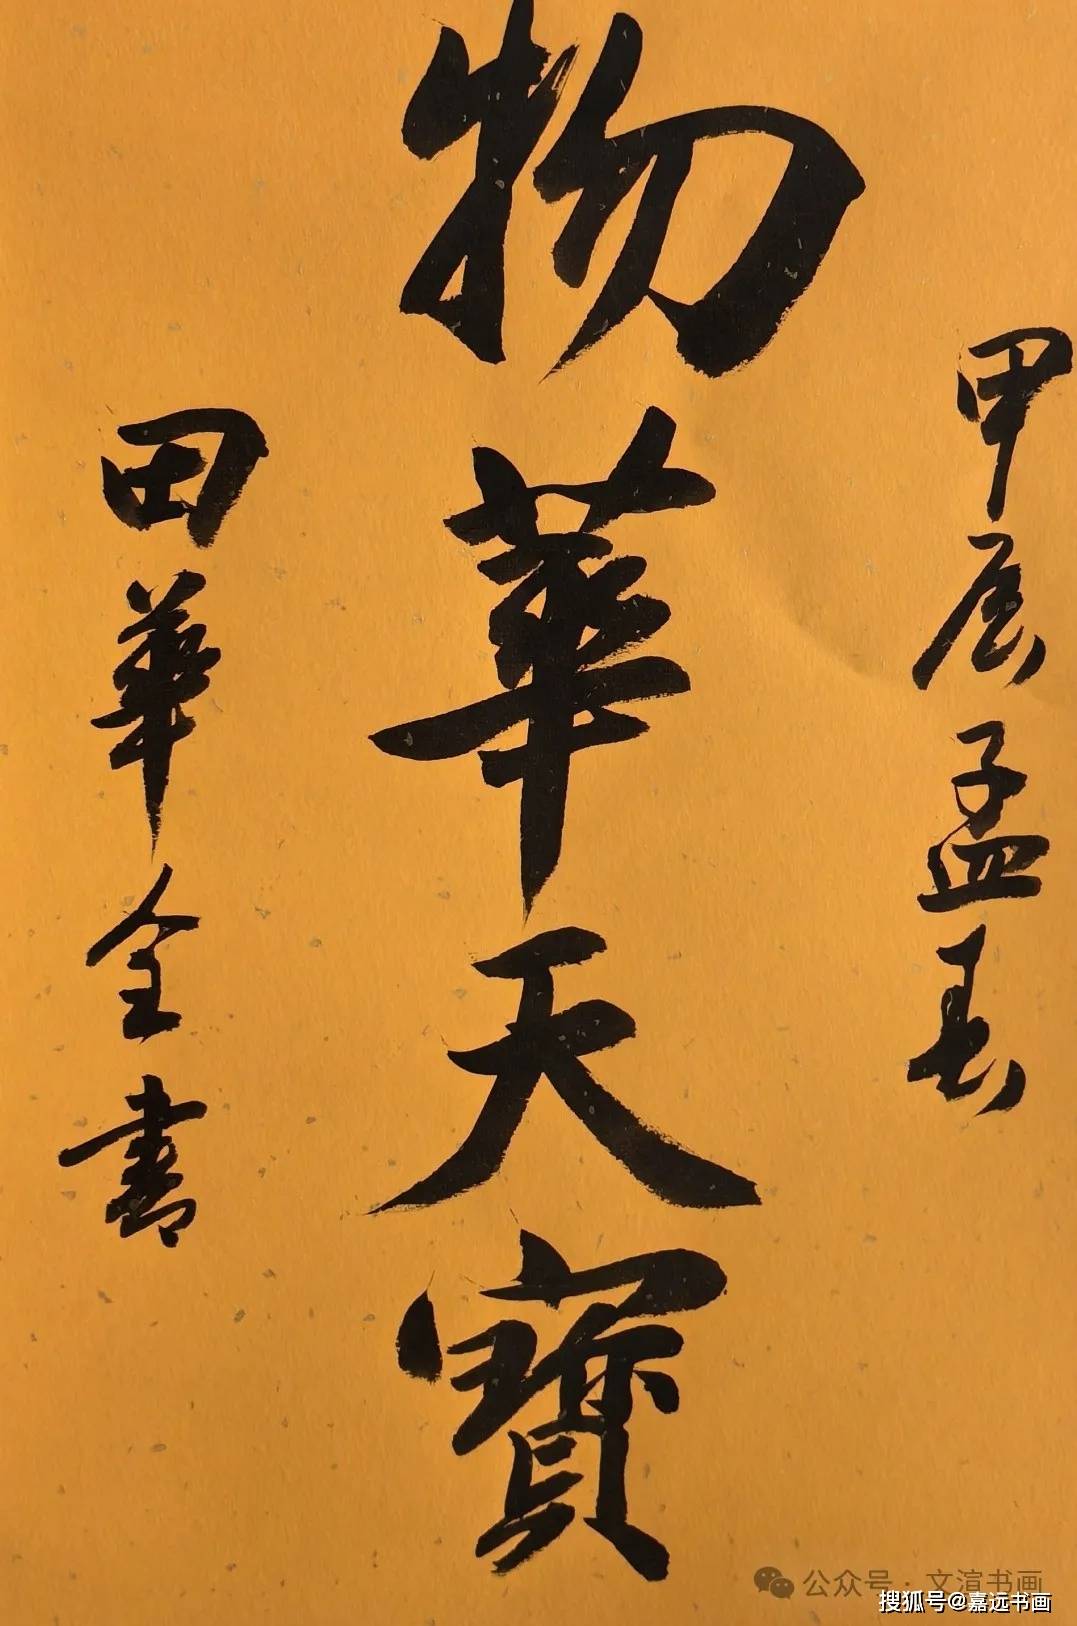 甲辰孟春
物華天寶
田華全書
公众号·文渲书画
搜狐号@嘉远书画